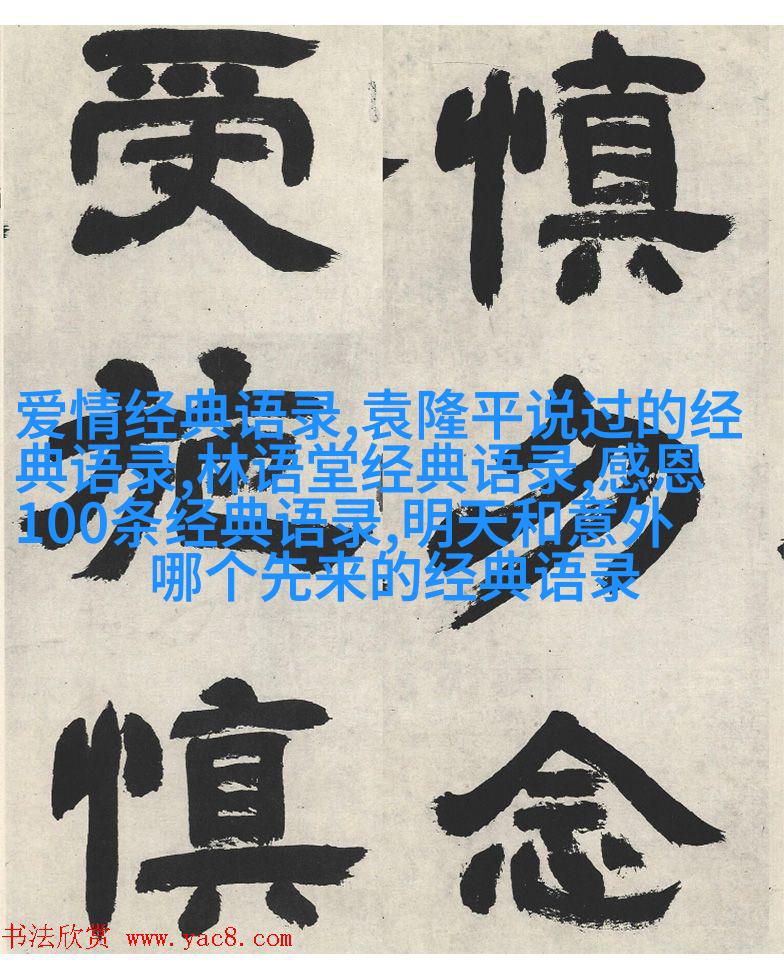 慎勿念
受施慎
爱情经典语录,袁隆平说过的经
典语录,林语堂经典语录,感恩
100条经典语录,明天和意外
哪个先来的经典语录
书法欣赏 www.yac8.com